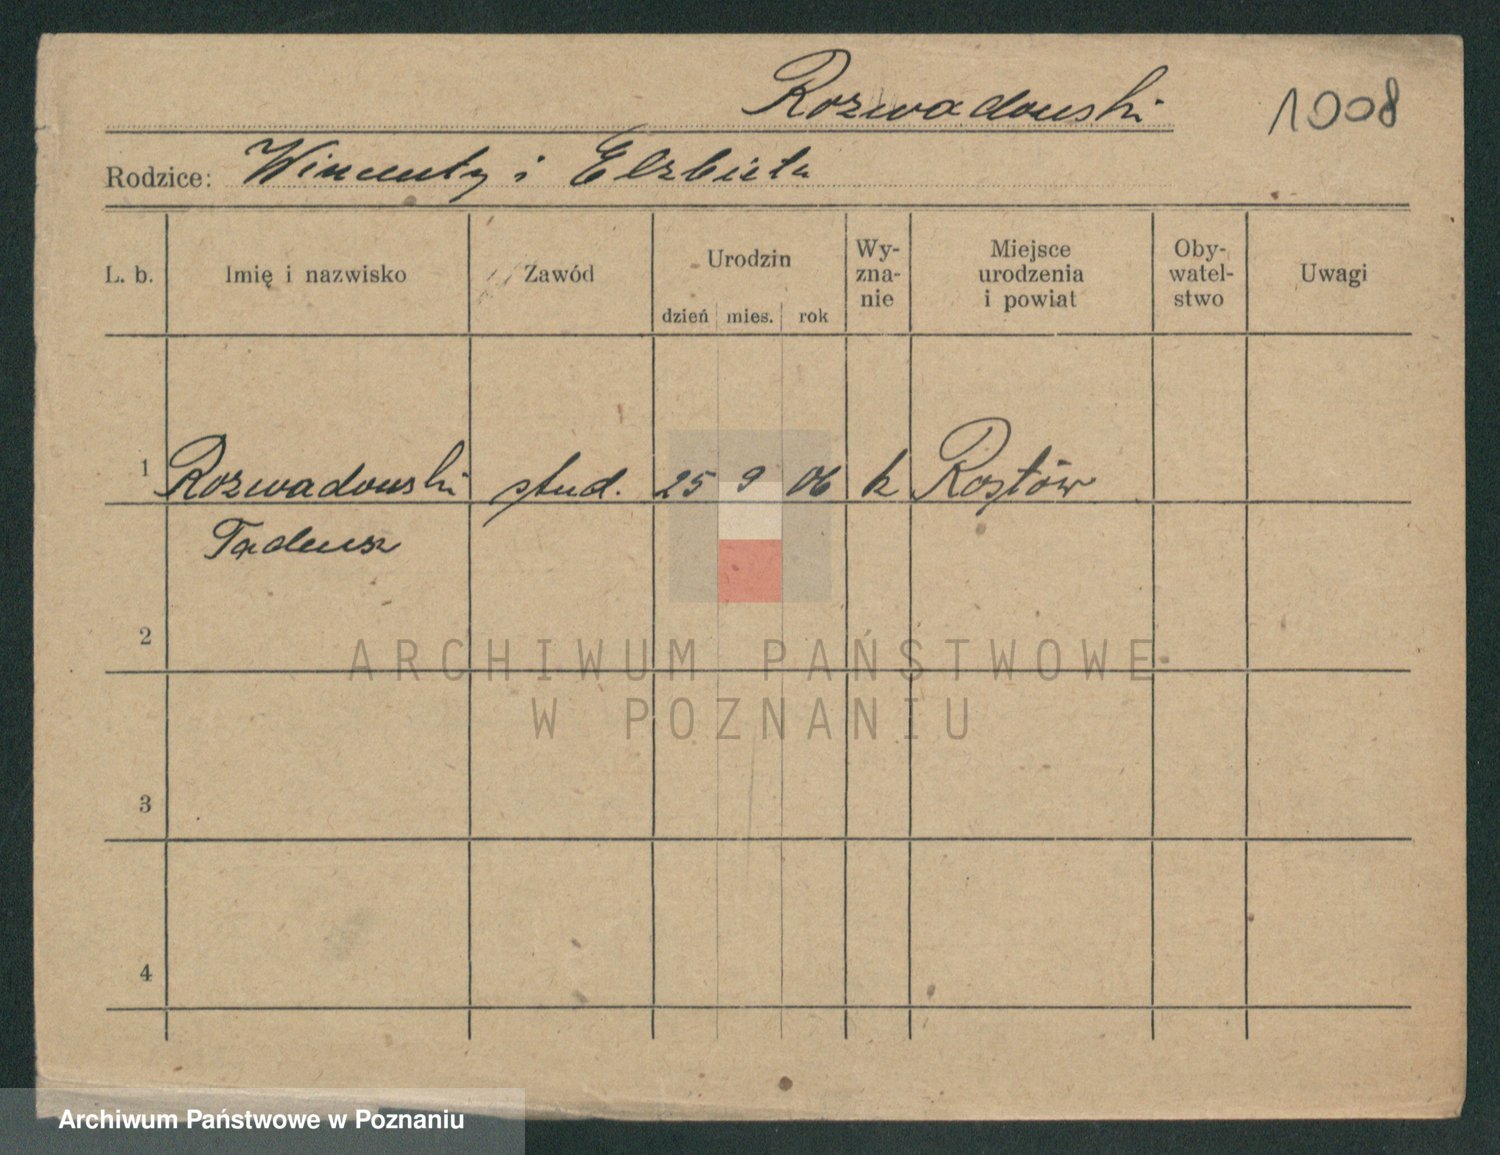 Rozwadowski
1008
Rodzice: Wincenty i Elżbieta
L. b. Imię i nazwisko Zawód Urodzin dzień mies. rok Wy-zna-nie Miejsce urodzenia i powiat Oby-watel-stwo Uwagi
1 Rozwadowski stud. 25 9 06 k Rostów
Tadeusz
2
ARCHIWUM PAŃSTWOWE
W POZNANIU
3
4
Archiwum Państwowe w Poznaniu